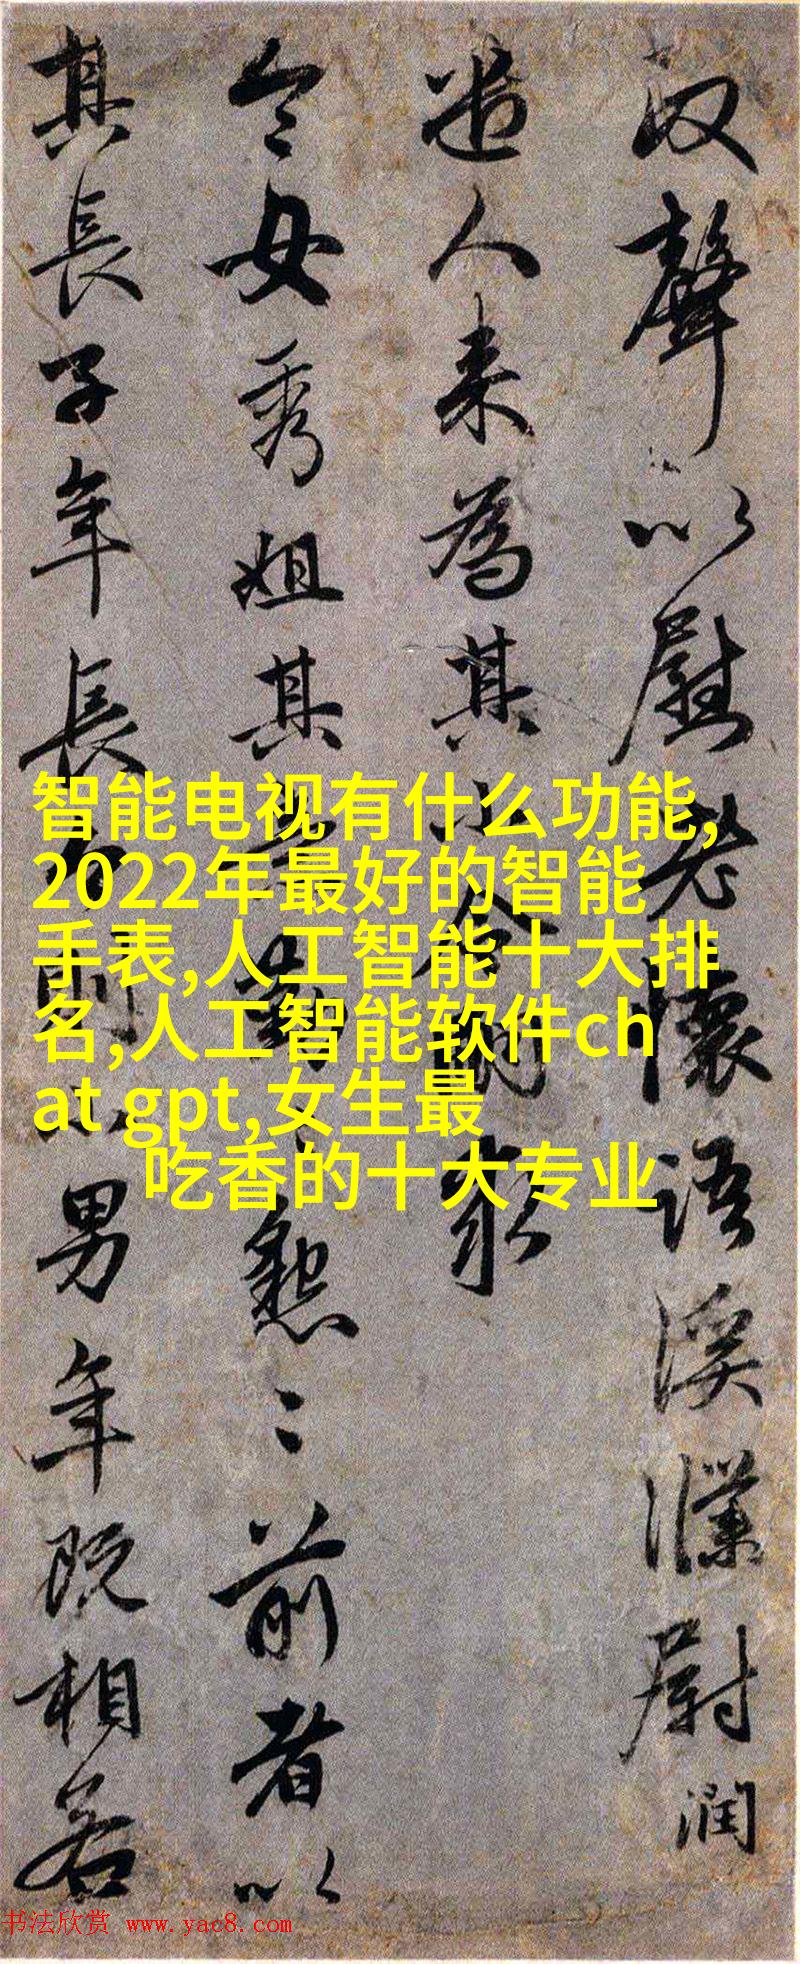 聲以慰老懷語溪濮尉潤
人来為其小
令女秀姐其意懇〻前者以
其長子年長則小男年既相若
智能电视有什么功能,
2022年最好的智能
手表,人工智能十大排
名,人工智能软件ch
at gpt,女生最
吃香的十大专业
书法欣赏 www.yac8.com